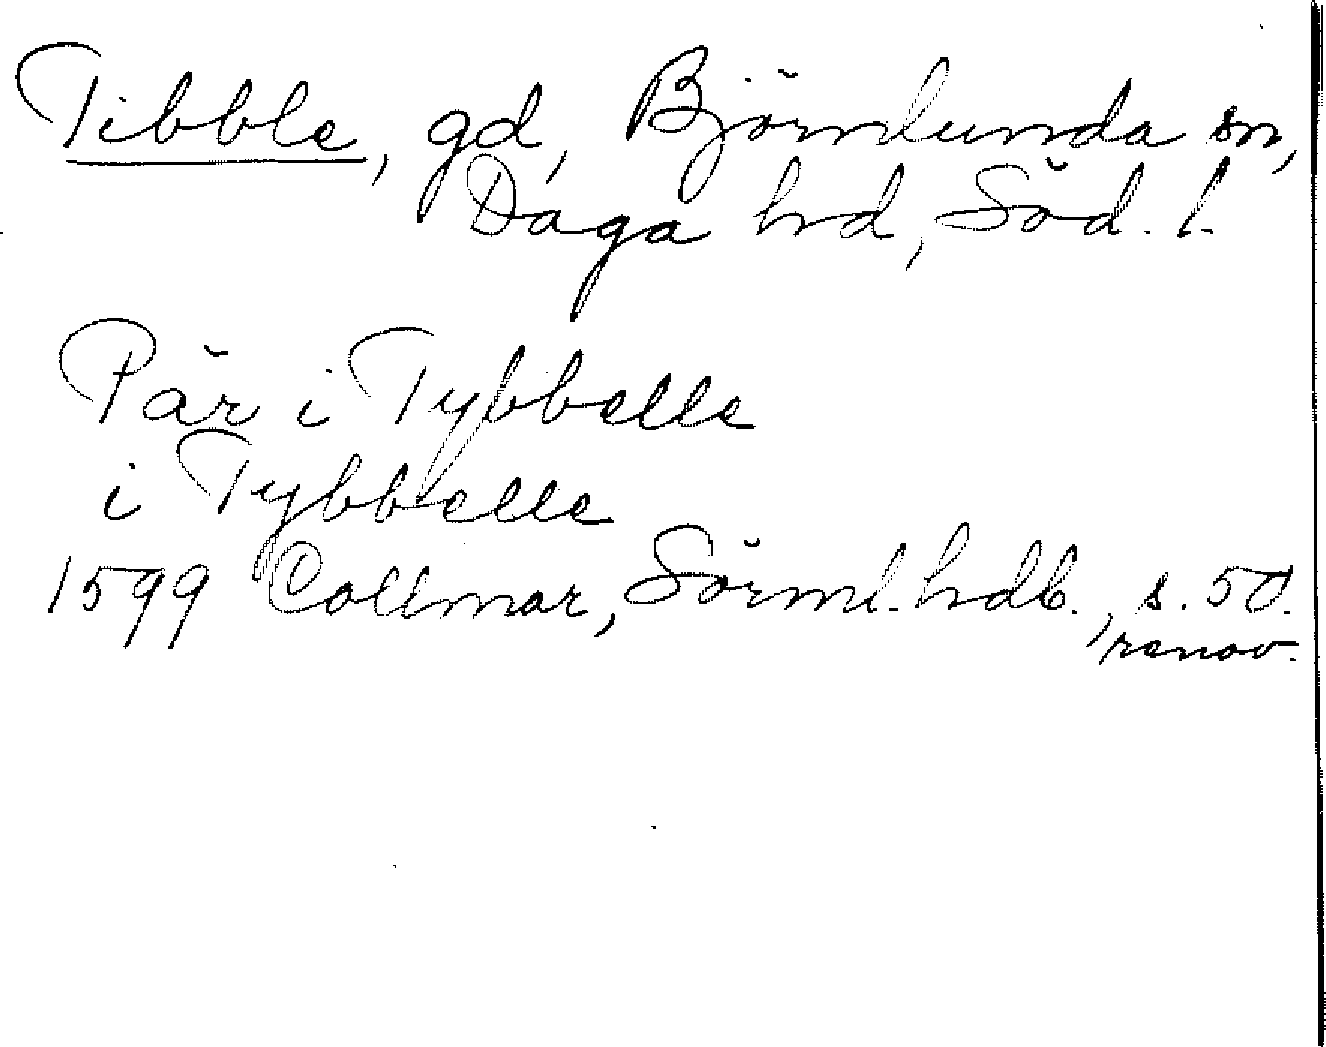 Tibble, gd, Björnlunda sn,
Daga hd, Söd. l.
Pär i Tybbelle
i Tybbelle
1599 Collmar, Sörml. hdb., s. 50.
renov.